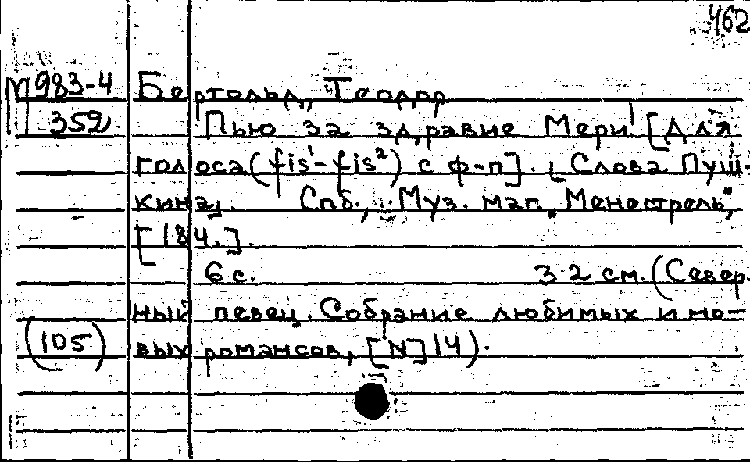 462
М 983-4 Бертольд, Теодор
359 Пью за здравие Мери! [Для
голоса (fis¹-fis²) с ф-п]. [Слова Пуш-
кина]. Спб., Муз. маг. "Менестрель",
[184.].
6 с. 32 см. (Север
ный певец. Собрание любимых и но-
(105) вых романсов, [N] 14).